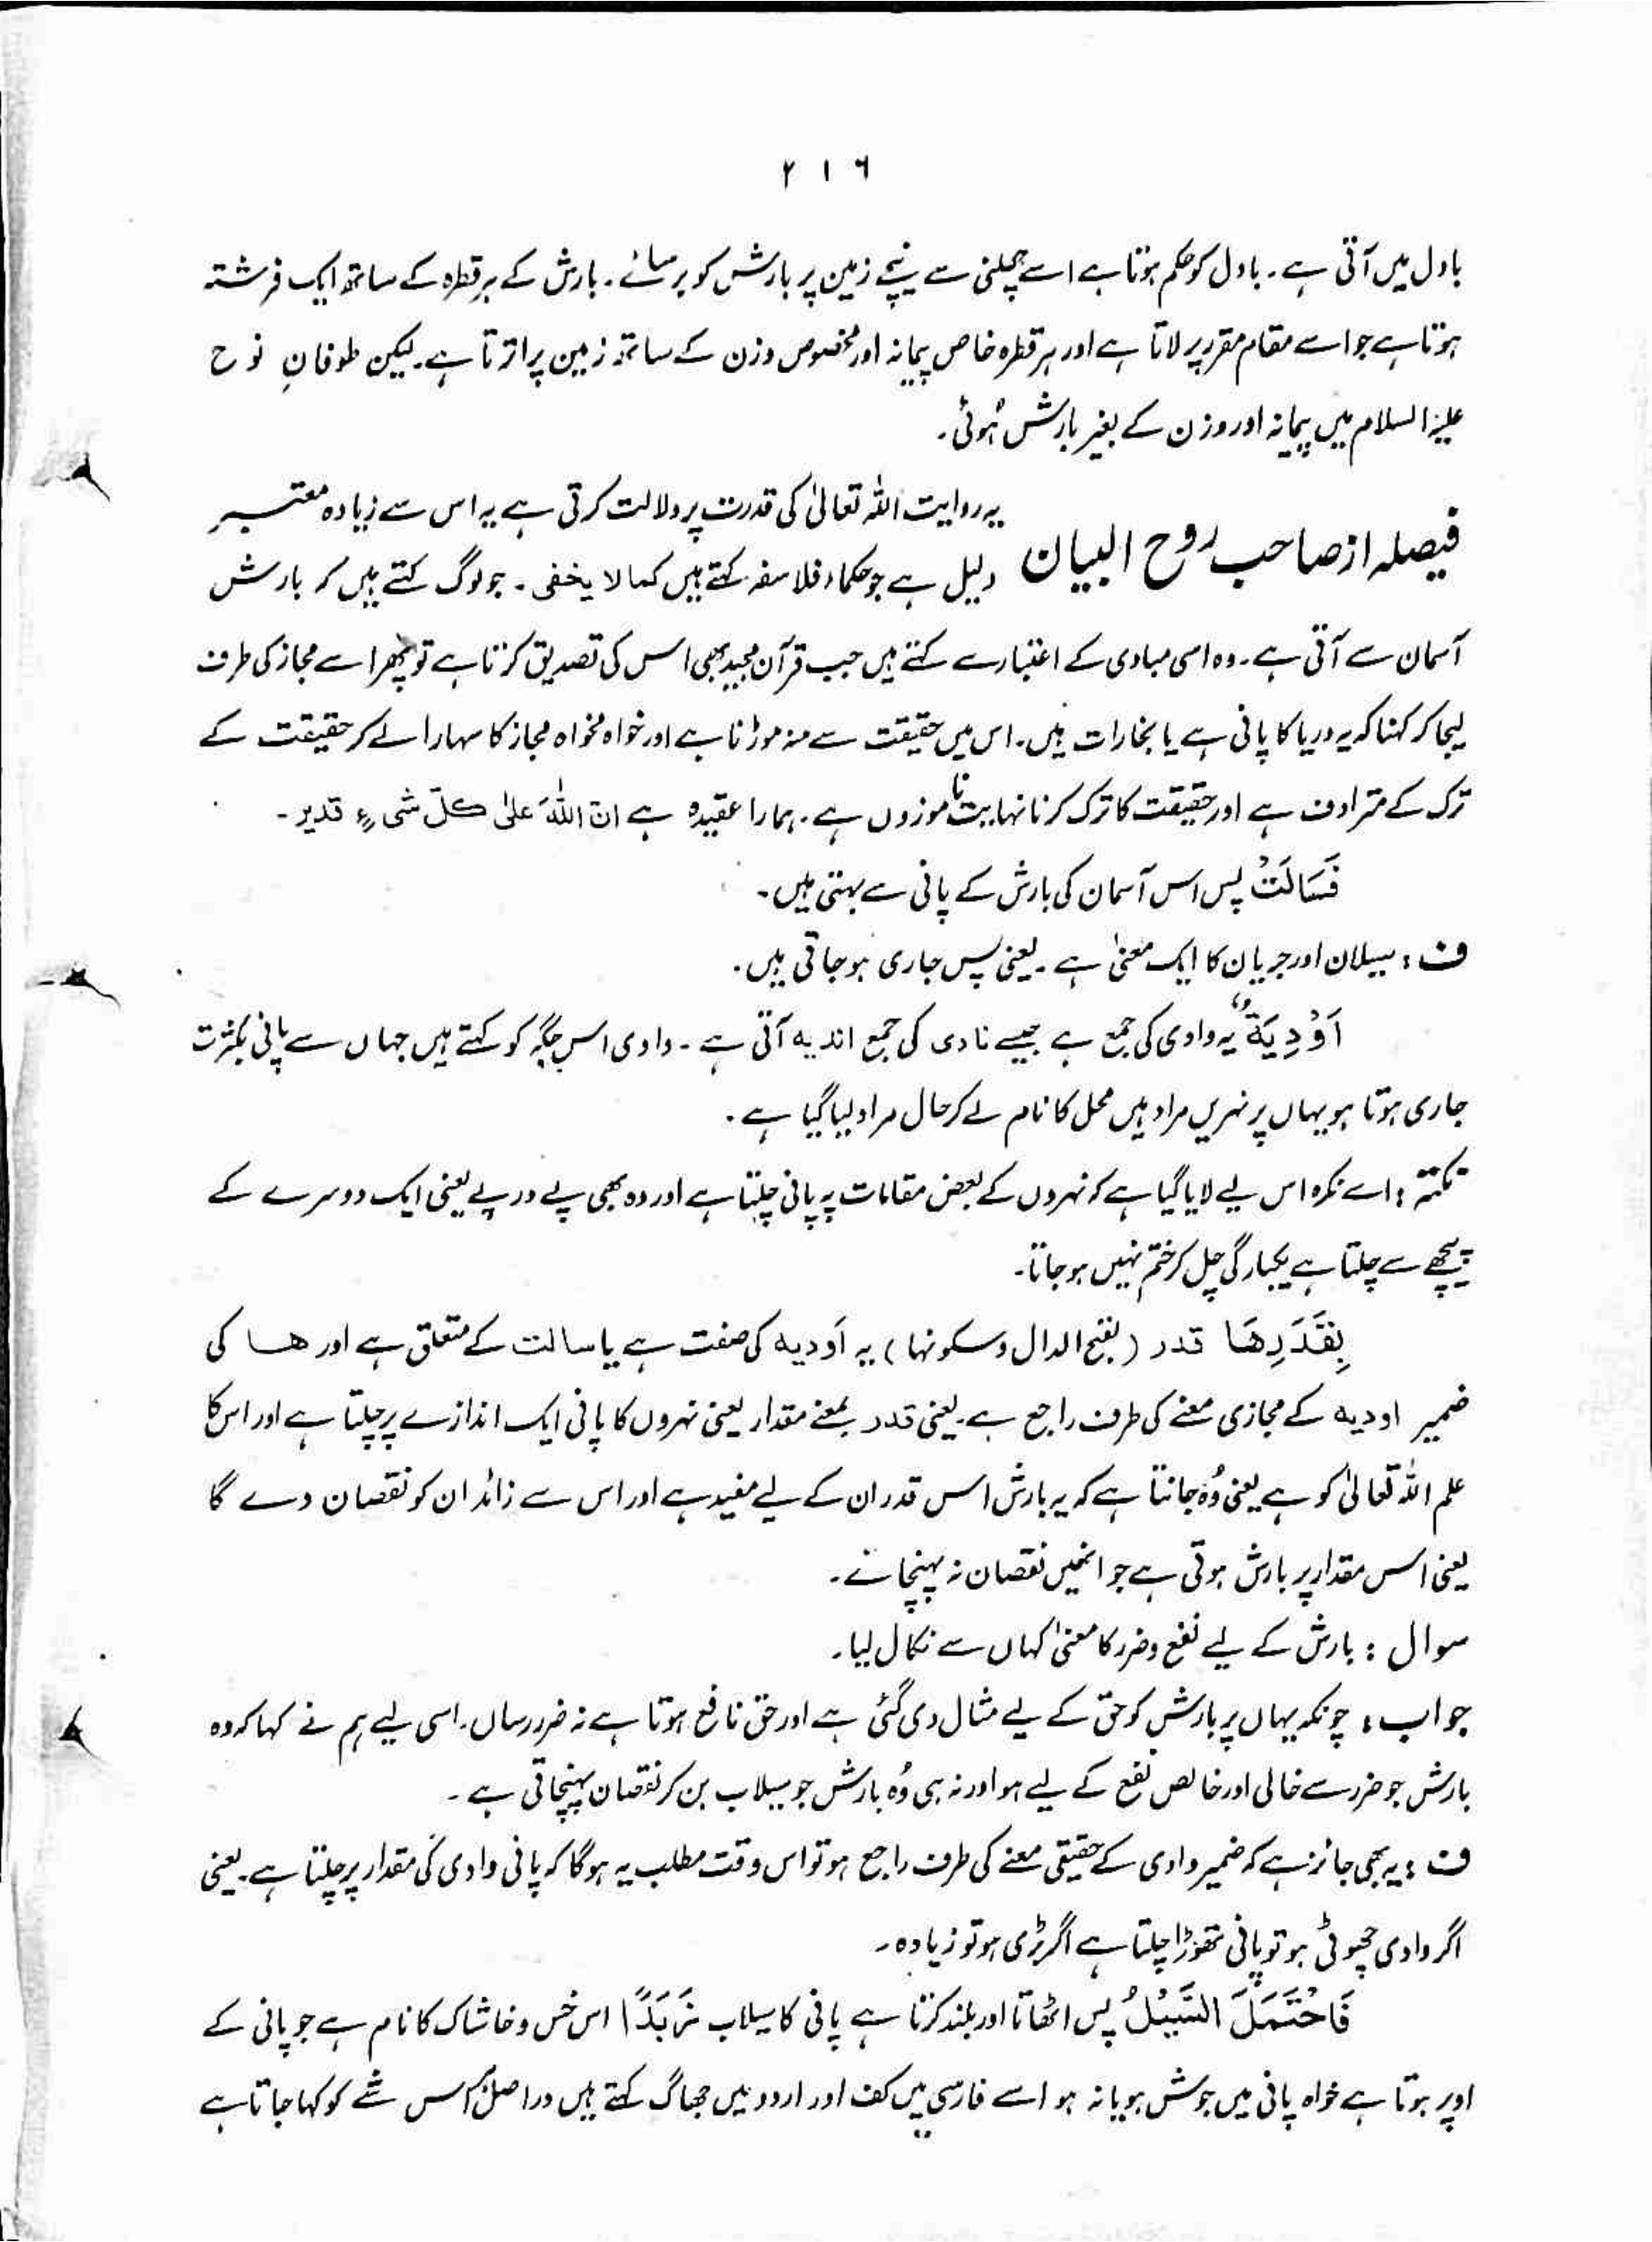 ۲۱۶
بادل میں آتی ہے۔ بادل کو حکم ہوتا ہے اسے چھلنی سے نیچے زمین پر بارش کو برسائے۔ بارش کے ہر قطرہ کے ساتھ ایک فرشتہ
ہوتا ہے جو اسے مقام مقرر پر لاتا ہے اور ہر قطرہ خاص پیمانہ اور مخصوص وزن کے ساتھ زمین پر اترتا ہے۔ لیکن طوفانِ نوح
علیہ السلام میں پیمانہ اور وزن کے بغیر بارش ہُوئی۔
فیصلہ از صاحب روح البیان
یہ روایت اللہ تعالیٰ کی قدرت پر دلالت کرتی ہے یہ اس سے زیادہ معتبر
دلیل ہے جو حکماء فلاسفہ کہتے ہیں کما لا یخفی۔ جو لوگ کہتے ہیں کہ بارش
آسمان سے آتی ہے۔ وہ اسی مبادی کے اعتبار سے کہتے ہیں جب قرآن مجید بھی اس کی تصدیق کرتا ہے تو پھر اسے مجاز کی طرف
لیجا کر کہنا کہ یہ دریا کا پانی ہے یا بخارات ہیں۔ اس میں حقیقت سے منہ موڑنا ہے اور خواہ مخواہ مجاز کا سہارا لے کر حقیقت کے
ترک کے مترادف ہے اور حقیقت کا ترک کرنا نہایت ناموزوں ہے۔ ہمارا عقیدہ ہے ان اللہَ علیٰ کلّ شیءٍ قدیر۔
فَسَالَتْ پس اس آسمان کی بارش کے پانی سے بہتی ہیں۔
ف: سیلان اور جریان کا ایک معنیٰ ہے۔ یعنی پس جاری ہو جاتی ہیں۔
اَوْدِیَةٌ یہ وادی کی جمع ہے جیسے نادی کی جمع اندیہ آتی ہے۔ وادی اس جگہ کو کہتے ہیں جہاں سے پانی بکثرت
جاری ہوتا ہو یہاں پر نہریں مراد ہیں محل کا نام لے کر حال مراد لیا گیا ہے۔
نکتہ: اسے نکرہ اس لیے لایا گیا ہے کہ نہروں کے بعض مقامات پہ پانی چلتا ہے اور وہ بھی پے در پے یعنی ایک دوسرے کے
پیچھے سے چلتا ہے یکبارگی چل کر ختم نہیں ہو جاتا۔
بِقَدَرِهَا قدر (بفتح الدال وسکونہا) یہ اَودیہ کی صفت ہے یا سالت کے متعلق ہے اور ھا کی
ضمیر اودیہ کے مجازی معنے کی طرف راجع ہے۔ یعنی قدر بمعنے مقدار یعنی نہروں کا پانی ایک اندازے پر چلتا ہے اور اس کا
علم اللہ تعالیٰ کو ہے یعنی وُہ جانتا ہے کہ یہ بارش اس قدر ان کے لیے مفید ہے اور اس سے زائد ان کو نقصان دے گا
یعنی اس مقدار پر بارش ہوتی ہے جو انھیں نقصان نہ پہنچائے۔
سوال: بارش کے لیے نفع و ضرر کا معنیٰ کہاں سے نکال لیا۔
جواب: چونکہ یہاں پر بارش کو حق کے لیے مثال دی گئی ہے اور حق نافع ہوتا ہے نہ ضرر رساں۔ اسی لیے ہم نے کہا کہ وہ
بارش جو ضرر سے خالی اور خالص نفع کے لیے ہو اور نہ ہی وُہ بارش جو سیلاب بن کر نقصان پہنچاتی ہے۔
ف: یہ بھی جائز ہے کہ ضمیر وادی کے حقیقی معنے کی طرف راجع ہو تو اس وقت مطلب یہ ہوگا کہ پانی وادی کی مقدار پر چلتا ہے۔ یعنی
اگر وادی چھوٹی ہو تو پانی تھوڑا چلتا ہے اگر بڑی ہو تو زیادہ۔
فَاحْتَمَلَ السَّیْلُ پس اٹھاتا اور بلند کرتا ہے پانی کا سیلاب زَبَدًا اس خس و خاشاک کا نام ہے جو پانی کے
اوپر ہوتا ہے خواہ پانی میں جوش ہو یا نہ ہو اسے فارسی میں کف اور اردو میں جھاگ کہتے ہیں دراصل اس شے کو کہا جاتا ہے